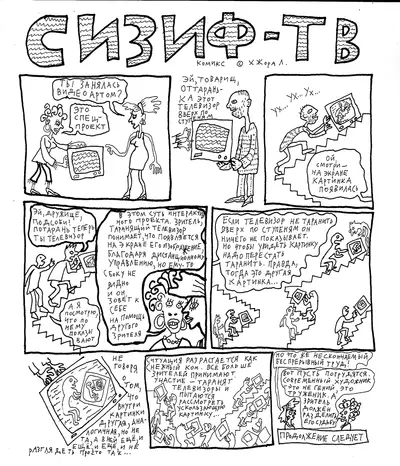 СИЗИФ-ТВ
КОМИКС © ХЖОРА Л.
ТЫ ЗАНЯЛАСЬ
ВИДЕОАРТОМ?
ЭТО
СПЕЦ-
ПРОЕКТ
ЭЙ, ТОВАРИЩ,
ОТТАРАНЬ-
КА ЭТОТ
ТЕЛЕВИЗОР
ВВЕРХ ПО
СТУПЕНЯМ
УХ... УХ... УХ...
ОЙ,
СМОТРИ-
НА ЭКРАНЕ
КАРТИНКА
ПОЯВИЛАСЬ
ЭЙ, ДРУЖИЩЕ,
ПОДСОБИ!
ПОТАРАНЬ ТЕПЕРЬ
ТЫ ТЕЛЕВИЗОР
А Я
ПОСМОТРЮ,
ЧТО ПО
НЕМУ
ПОКАЗЫ
ВАЮТ
В ЭТОМ СУТЬ ИНТЕРАКТИВ
НОГО ПРОЕКТА. ЗРИТЕЛЬ,
ТАРАНЯЩИЙ ТЕЛЕВИЗОР
ПОНИМАЕТ, ЧТО ПОЯВЛЯЕТСЯ
НА ЭКРАНЕ ЕГО ИЗОБРАЖЕНИЕ
БЛАГОДАРЯ ДИСТАНЦИОННОМУ
УПРАВЛЕНИЮ, НО ЕМУ-ТО
СБОКУ НЕ
ВИДНО
И ОН
ЗОВЁТ К
СЕБЕ
НА ПОМОЩЬ
ДРУГОГО
ЗРИТЕЛЯ
ЕСЛИ ТЕЛЕВИЗОР НЕ ТАРАНИТЬ
ВВЕРХ ПО СТУПЕНЯМ ОН
НИЧЕГО НЕ ПОКАЗЫВАЕТ.
НО ЧТОБЫ УВИДАТЬ КАРТИНКУ
НАДО ПЕРЕСТАТЬ
ТАРАНИТЬ. ПРАВДА,
ТОГДА ЭТО ДРУГАЯ
КАРТИНКА...
НЕ
ГОВОРЯ
О
ТОМ,
ЧТО
ВНУТРИ
КАРТИНКИ
ДРУГАЯ, АНА-
ЛОГИЧНАЯ, НО НЕ
ТА, А В НЕЙ ЕЩЁ, И
ЕЩЁ, И ЕЩЁ, И НЕ
РАЗГЛЯДЕТЬ ПРОСТО ТАК...
СИТУАЦИЯ РАЗРАСТАЕТСЯ КАК
СНЕЖНЫЙ КОМ. ВСЕ БОЛЬШЕ
ЗРИТЕЛЕЙ ПРИНИМАЮТ
УЧАСТИЕ - ТАРАНЯТ
ТЕЛЕВИЗОРЫ И
ПЫТАЮТСЯ
РАССМОТРЕТЬ
УСКОЛЬЗАЮЩУЮ
КАРТИНКУ...
НО ЭТО ЖЕ НЕСКОНЧАЕМЫЙ
БЕСПРЕРЫВНЫЙ ТРУД!
ВОТ ПУСТЬ ПОТРУДЯТСЯ.
СОВРЕМЕННЫЙ ХУДОЖНИК
- ЭТО НЕ ГЕНИЙ, ЭТО
ТРУЖЕНИК. А
ЗРИТЕЛЬ
ДОЛЖЕН
РАЗДЕЛИТЬ
ЕГО СУДЬБУ
ПРОДОЛЖЕНИЕ СЛЕДУЕТ